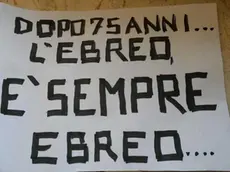 DOPO 75 ANNI...
L'EBREO,
E' SEMPRE
EBREO....